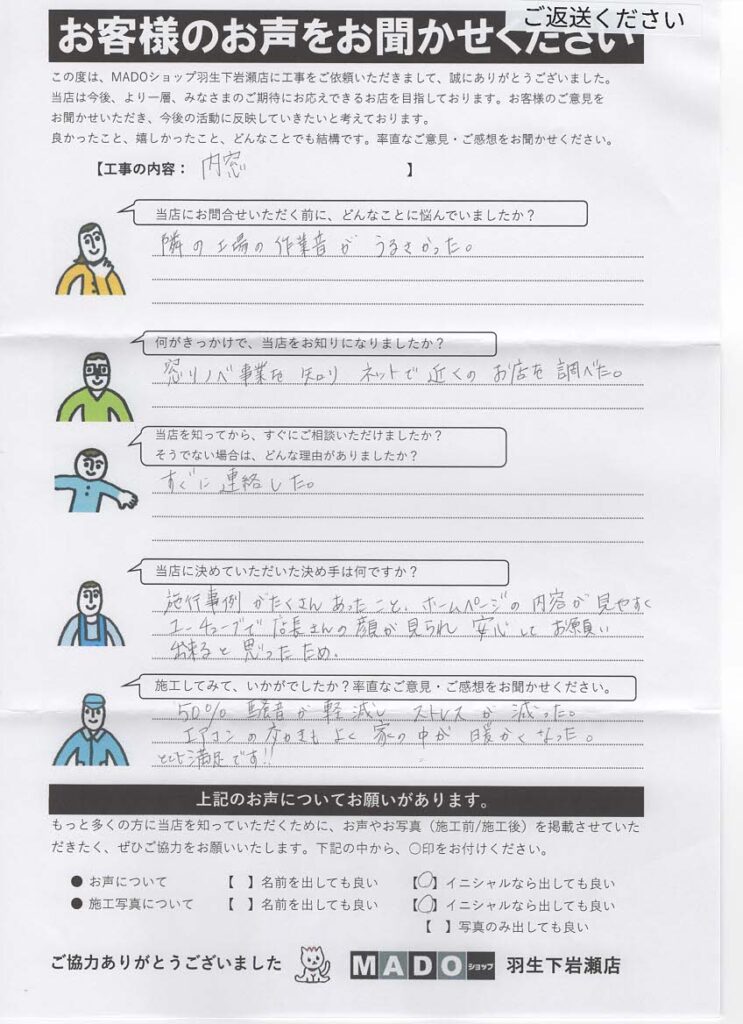 ご返送ください
お客様のお声をお聞かせください
この度は、MADOショップ羽生下岩瀬店に工事をご依頼いただきまして、誠にありがとうございました。
当店は今後、より一層、みなさまのご期待にお応えできるお店を目指しております。お客様のご意見を
お聞かせいただき、今後の活動に反映していきたいと考えております。
良かったこと、嬉しかったこと、どんなことでも結構です。率直なご意見・ご感想をお聞かせください。
【工事の内容： 内窓 】
当店にお問合せいただく前に、どんなことに悩んでいましたか？
隣の工場の作業音が うるさかった。
何がきっかけで、当店をお知りになりましたか？
窓リノベ事業を知り ネットで近くの お店を調べた。
当店を知ってから、すぐにご相談いただけましたか？
そうでない場合は、どんな理由がありましたか？
すぐに連絡した。
当店に決めていただいた決め手は何ですか？
施行事例がたくさんあったこと、ホームページの内容が見やすく
ユーチューブで店長さんの顔が見られ 安心してお願い
出来ると思ったため.
施工してみて、いかがでしたか？率直なご意見・ご感想をお聞かせください。
50% 騒音が軽減し ストレスが減った。
エアコンの効きもよく 家の中が 暖かくなった。
とても満足です!!
上記のお声についてお願いがあります。
もっと多くの方に当店を知っていただくために、お声やお写真（施工前/施工後）を掲載させていた
だきたく、ぜひご協力をお願いいたします。下記の中から、〇印をお付けください。
● お声について 【 】名前を出しても良い 【〇】イニシャルなら出しても良い
● 施工写真について 【 】名前を出しても良い 【〇】イニシャルなら出しても良い
【 】写真のみ出しても良い
ご協力ありがとうございました MADOショップ 羽生下岩瀬店